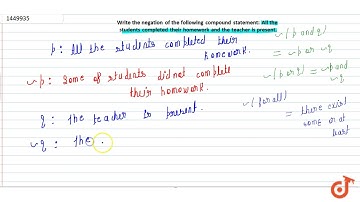 1449935
Write the negation of the following compound statement: All the
students completed their homework and the teacher is present.
p : All the students completed their
homework.
~p : Some of students did not complete
their homework.
q : The teacher is present.
~q : The
~(p and q)
= ~p or ~q
~(p or q) = ~p and ~q
~(for all)
= there exist
some or at
least